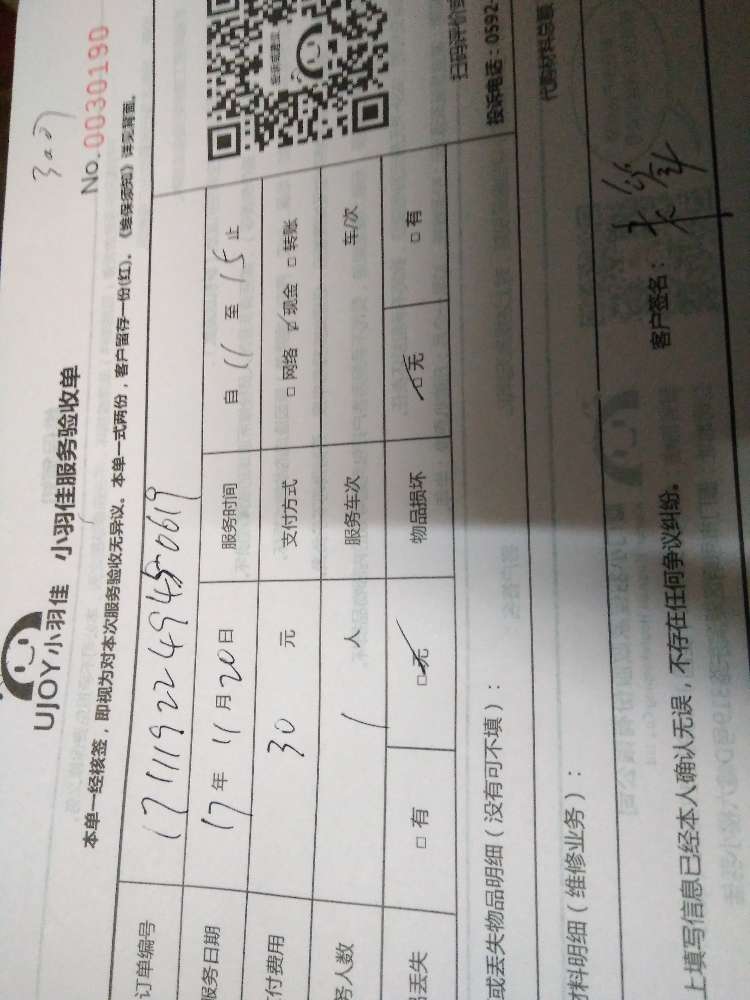 3a07
No.0030190
UJOY小羽佳 小羽佳服务验收单
本单一经核签，即视为对本次服务验收无异议。本单一式两份，客户留存一份(红)。《维保须知》详见背面。
订单编号 1711192249450619
服务日期 17年11月20日 服务时间 自11至15止
付费用 30元 支付方式 □网络 ☑现金 □转账
务人数 1人 服务车次 车/次
品丢失 □有 ☑无 物品损坏 ☑无 □有
投诉或建议
扫码评价或
投诉电话：0592-
或丢失物品明细（没有可不填）：
代购材料总额
材料明细（维修业务）：
上填写信息已经本人确认无误，不存在任何争议纠纷。 客户签名：